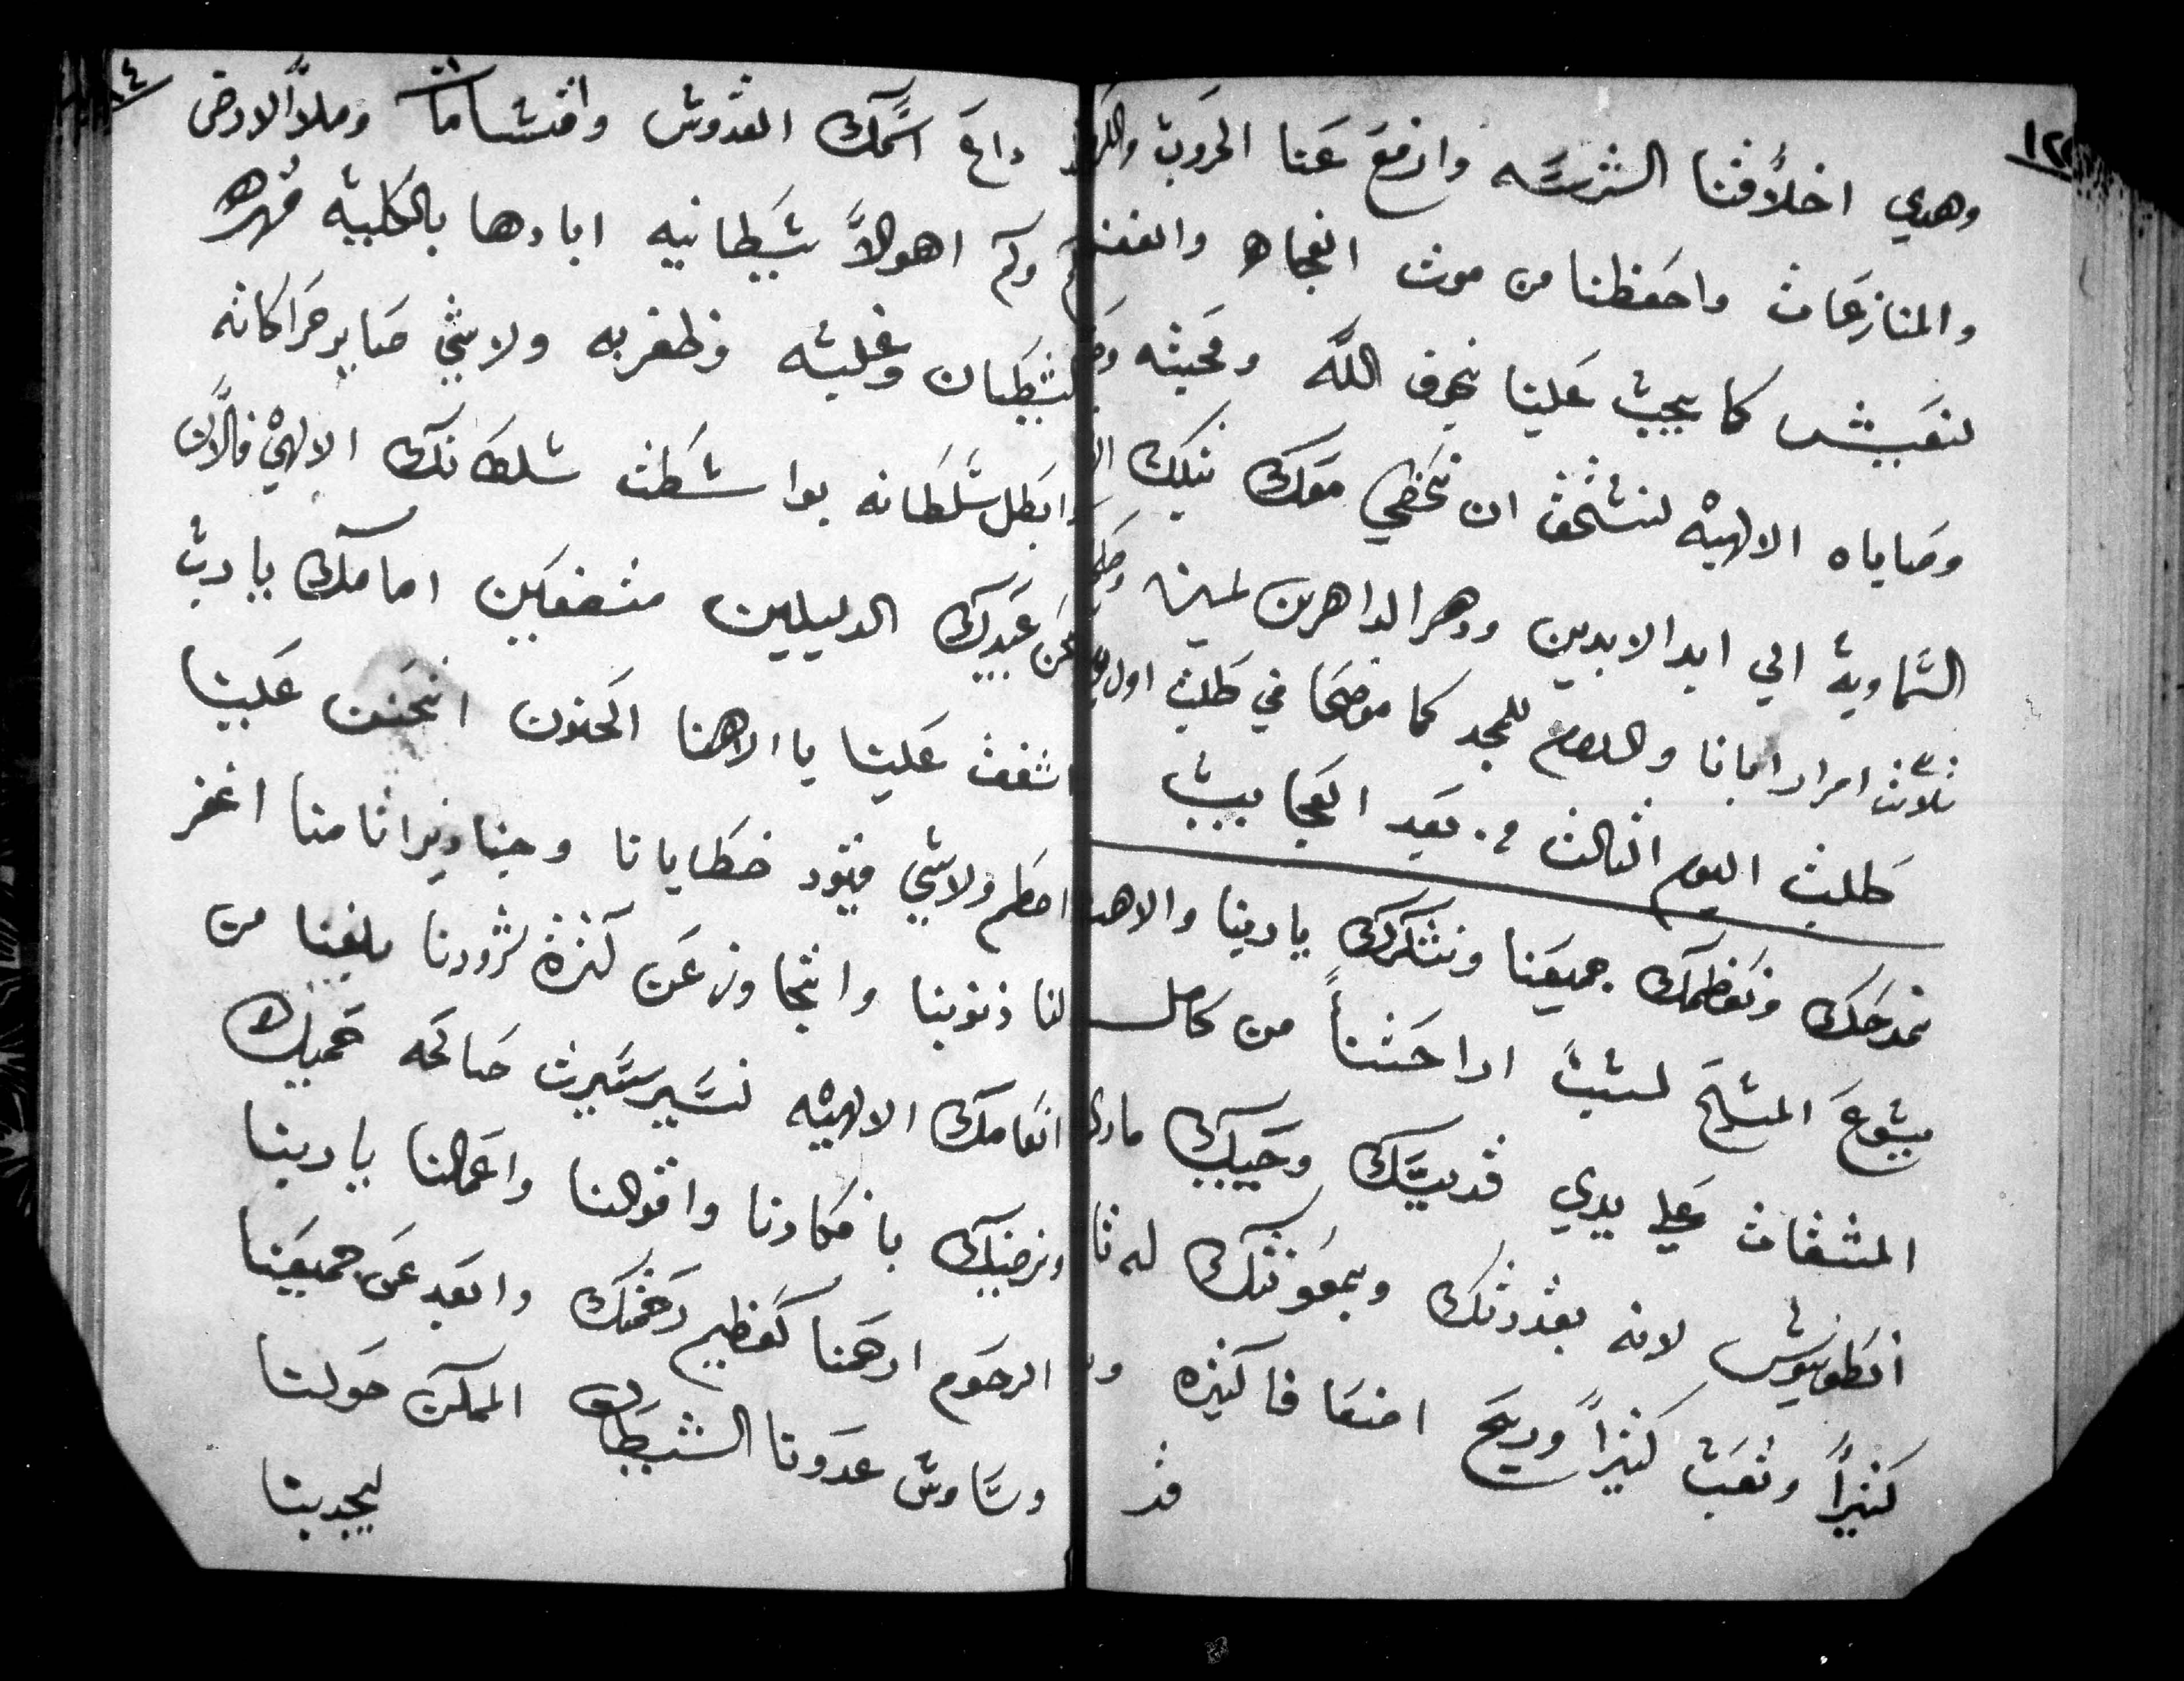 ١٢
وهدي اخلاقنا الشرسه وارفع عنا الحروب
والمنازعات واحفظنا من موت الفجاه
لنعيش كما يجب علينا بخوف الله ومحبته
وصاياه الالهيه لنستحق ان نحضي معك بتلك
السماوية الي ابد الابدين ودهر الداهرين امين
ثلاث امرار ابانا والسلام للمجد كما موضحا في طلبت اول
طلبت اليوم الثالث بعيد العجايب
نمدحك ونعظمك جميعنا ونشكرك يا ربنا والاهنا
يشوع المسيح لسبب اراحتنا من كامل
المشقات علي يدي قديسك وحبيبك مار
انطونيوس لانه بقدرتك وبمعونتك
كثيراً وتعب كثيراً وربح اضعافا كثيره
قد
داع اسمك القدوس وملا الارض
وكم اهوالاً شيطانيه ابادها بالكلية قهر
الشيطان وغلبه وظفر به ولاشي ساير حراكاته
وابطل سلطانه بواسطت سلطانك الالهي فالان
نحن عبيدك الدليلين متضعين امامك يا رب
اشفق علينا يا الاهنا الحنون اتحنن علينا
احطم ولاشي قيود خطايانا وجنا ونيراتنا منا اغفر
لنا ذنوبنا واتجاوز عن كثرة شرورنا بلغنا من
انعامك الالهيه نسير سيرت صالحه تحميك
ونرضيك بافكارنا واقوالنا واعمالنا يا ربنا
الرحوم ارحمنا كعظيم رحمتك وابعد عن جميعنا
وساوس عدونا الشيطان الممكن حولنا
ليجدبنا